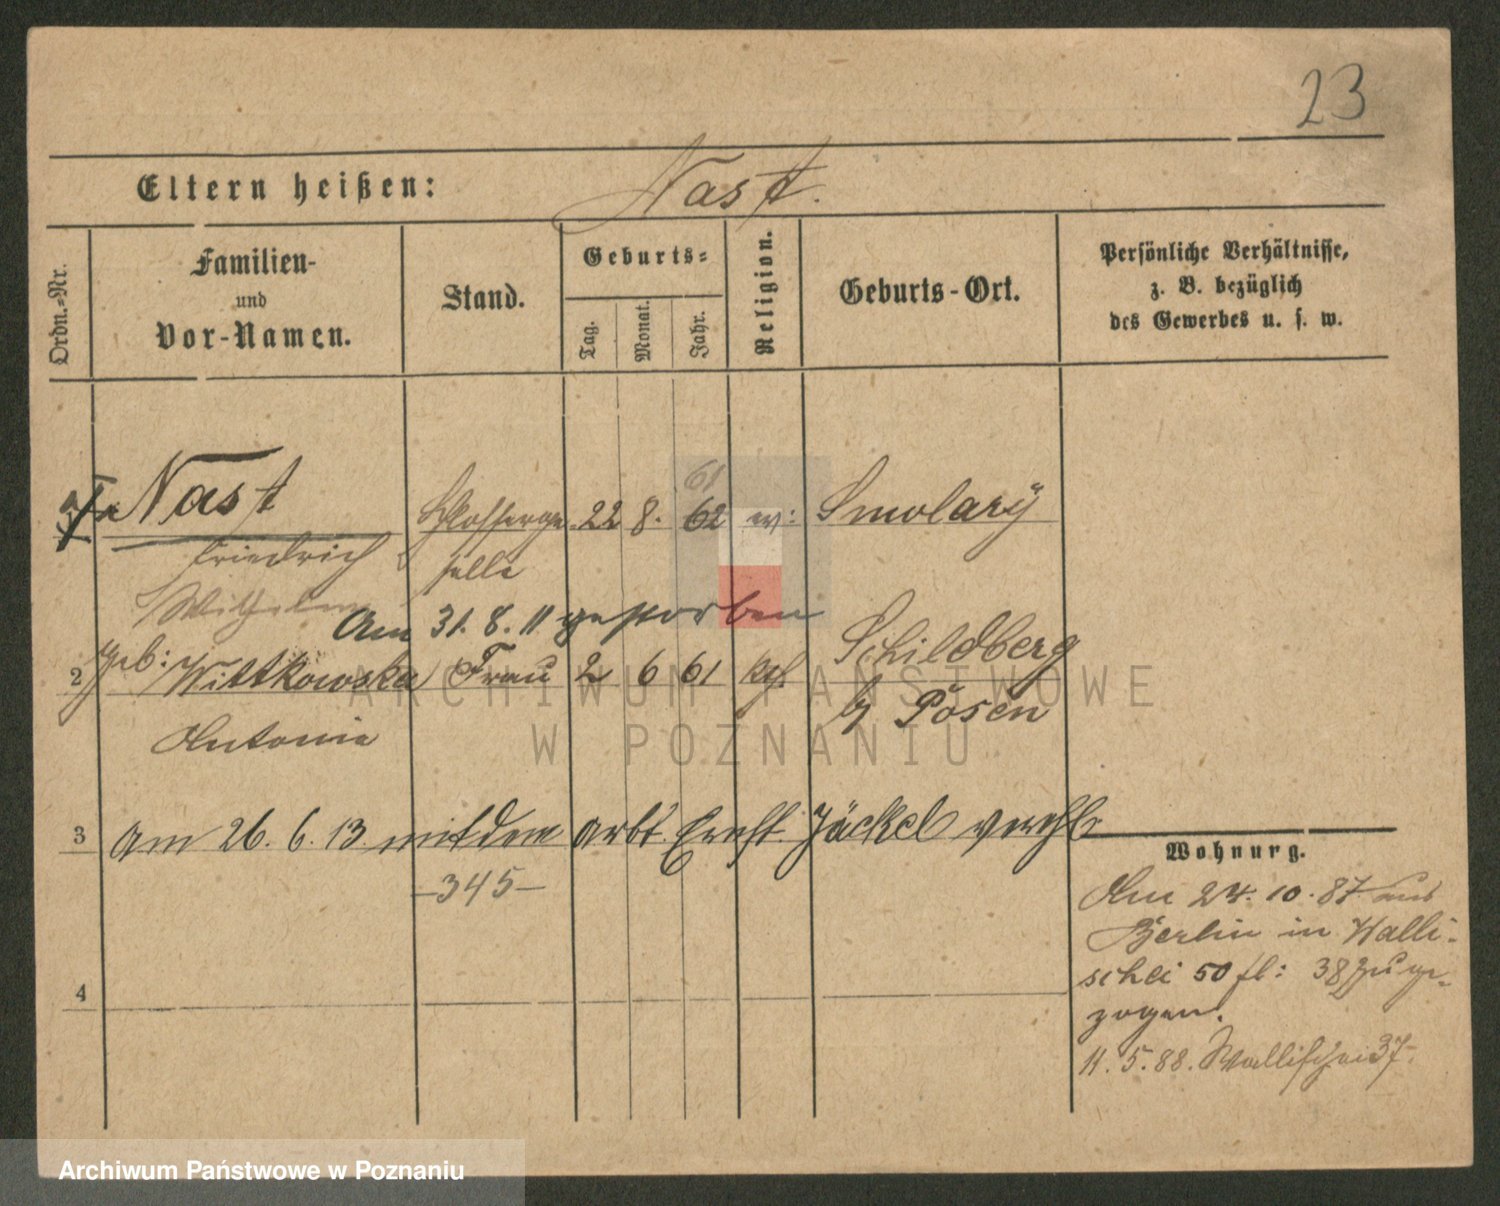 23
Eltern heißen: Nast.
Ordn.=Nr.
Familien-
und
Vor-Namen.
Stand.
Geburts=
Tag.
Monat.
Jahr.
Religion.
Geburts-Ort.
Persönliche Verhältnisse,
z. B. bezüglich
des Gewerbes u. s. w.
61
Nast Schlosserge- 22 8. 62 ev: Smolary
Friedrich selle
Wilhelm
Am 31. 8. 11 gestorben
geb:
2 Wittkowska Frau 2 6 61 kth. Schildberg
Antonie Posen
3 Am 26. 6. 13 mit dem Arbt. Ernst Jäckel verehl
-345-
4
Wohnung.
Am 24. 10. 87 aus
Berlin in Walli-
schei 50 fl: 38 zuge-
zogen.
11. 5. 88. Wallischei 37.
ARCHIWUM PAŃSTWOWE
W POZNANIU
Archiwum Państwowe w Poznaniu